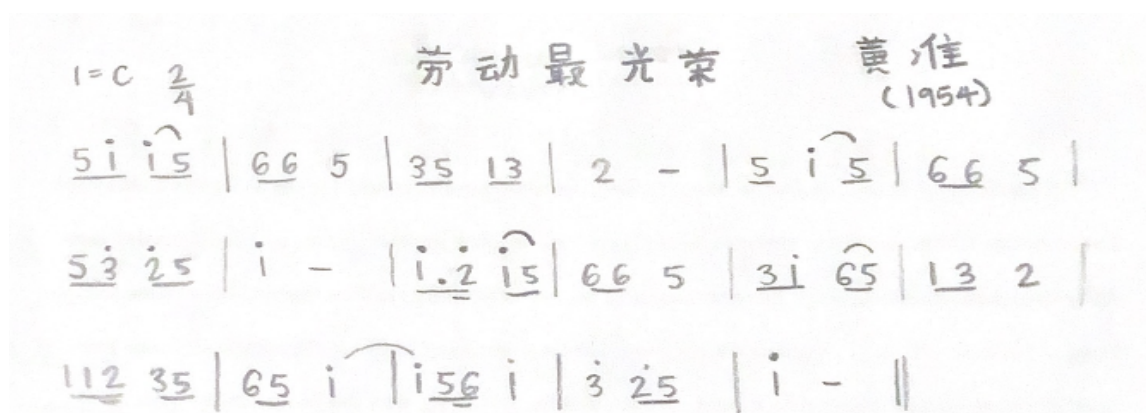 1=C 2/4 劳动最光荣 黄准
(1954)
5i̇ i̇5 | 66 5 | 35 13 | 2 - | 5 i̇ 5 | 66 5 |
53̇ 2̇5 | i̇ - | i̇.2̇ i̇5 | 66 5 | 3i̇ 65 | 13 2 |
112 35 | 65 i̇ | i̇56 i̇ | 3̇ 2̇5 | i̇ - ||